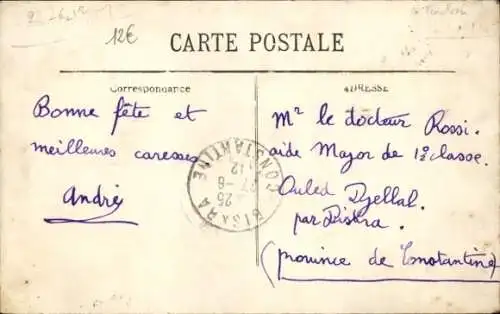 12€
CARTE POSTALE
Correspondance
ADRESSE
Bonne fête et
meilleures caresses
André
CONSTANTINE
BISKRA
Mr le docteur Rossi.
aide Major de 1e classe.
Ouled Djellal.
par Biskra.
(province de Constantine)